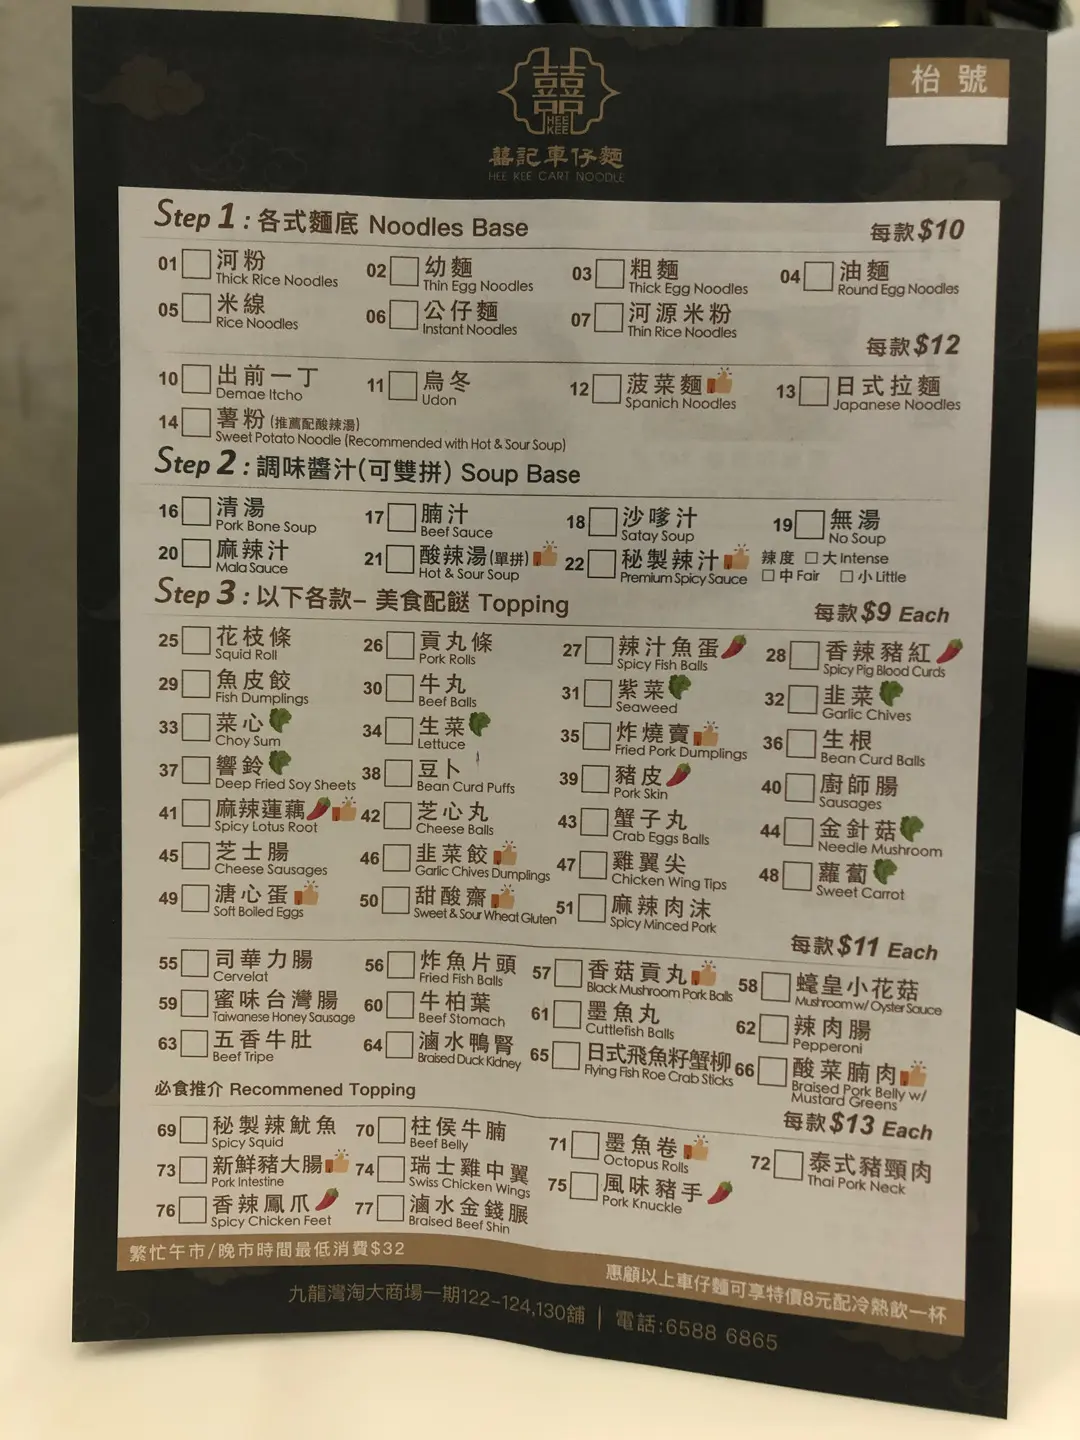 枱號
囍
HEE
KEE
囍記車仔麵
HEE KEE CART NOODLE
Step 1 : 各式麵底 Noodles Base 每款$10
01 河粉 Thick Rice Noodles
02 幼麵 Thin Egg Noodles
03 粗麵 Thick Egg Noodles
04 油麵 Round Egg Noodles
05 米線 Rice Noodles
06 公仔麵 Instant Noodles
07 河源米粉 Thin Rice Noodles
每款$12
10 出前一丁 Demae Itcho
11 烏冬 Udon
12 菠菜麵 Spanich Noodles
13 日式拉麵 Japanese Noodles
14 薯粉 (推薦配酸辣湯)
Sweet Potato Noodle (Recommended with Hot & Sour Soup)
Step 2 : 調味醬汁(可雙拼) Soup Base
16 清湯 Pork Bone Soup
17 腩汁 Beef Sauce
18 沙嗲汁 Satay Soup
19 無湯 No Soup
20 麻辣汁 Mala Sauce
21 酸辣湯(單拼) Hot & Sour Soup
22 秘製辣汁 Premium Spicy Sauce
辣度 大Intense
中Fair 小Little
Step 3 : 以下各款– 美食配餸 Topping 每款$9 Each
25 花枝條 Squid Roll
26 貢丸條 Pork Rolls
27 辣汁魚蛋 Spicy Fish Balls
28 香辣豬紅 Spicy Pig Blood Curds
29 魚皮餃 Fish Dumplings
30 牛丸 Beef Balls
31 紫菜 Seaweed
32 韭菜 Garlic Chives
33 菜心 Choy Sum
34 生菜 Lettuce
35 炸燒賣 Fried Pork Dumplings
36 生根 Bean Curd Balls
37 響鈴 Deep Fried Soy Sheets
38 豆卜 Bean Curd Puffs
39 豬皮 Pork Skin
40 廚師腸 Sausages
41 麻辣蓮藕 Spicy Lotus Root
42 芝心丸 Cheese Balls
43 蟹子丸 Crab Eggs Balls
44 金針菇 Needle Mushroom
45 芝士腸 Cheese Sausages
46 韭菜餃 Garlic Chives Dumplings
47 雞翼尖 Chicken Wing Tips
48 蘿蔔 Sweet Carrot
49 溏心蛋 Soft Boiled Eggs
50 甜酸齋 Sweet & Sour Wheat Gluten
51 麻辣肉沫 Spicy Minced Pork
每款$11 Each
55 司華力腸 Cervelat
56 炸魚片頭 Fried Fish Balls
57 香菇貢丸 Black Mushroom Pork Balls
58 蠔皇小花菇 Mushroom w/ Oyster Sauce
59 蜜味台灣腸 Taiwanese Honey Sausage
60 牛柏葉 Beef Stomach
61 墨魚丸 Cuttlefish Balls
62 辣肉腸 Pepperoni
63 五香牛肚 Beef Tripe
64 滷水鴨腎 Braised Duck Kidney
65 日式飛魚籽蟹柳 Flying Fish Roe Crab Sticks
66 酸菜腩肉 Braised Pork Belly w/ Mustard Greens
必食推介 Recommened Topping 每款$13 Each
69 秘製辣魷魚 Spicy Squid
70 柱侯牛腩 Beef Belly
71 墨魚卷 Octopus Rolls
72 泰式豬頸肉 Thai Pork Neck
73 新鮮豬大腸 Pork Intestine
74 瑞士雞中翼 Swiss Chicken Wings
75 風味豬手 Pork Knuckle
76 香辣鳳爪 Spicy Chicken Feet
77 滷水金錢𦟌 Braised Beef Shin
繁忙午市/晚市時間最低消費$32
惠顧以上車仔麵可享特價8元配冷熱飲一杯
九龍灣淘大商場一期122-124,130舖 | 電話:6588 6865